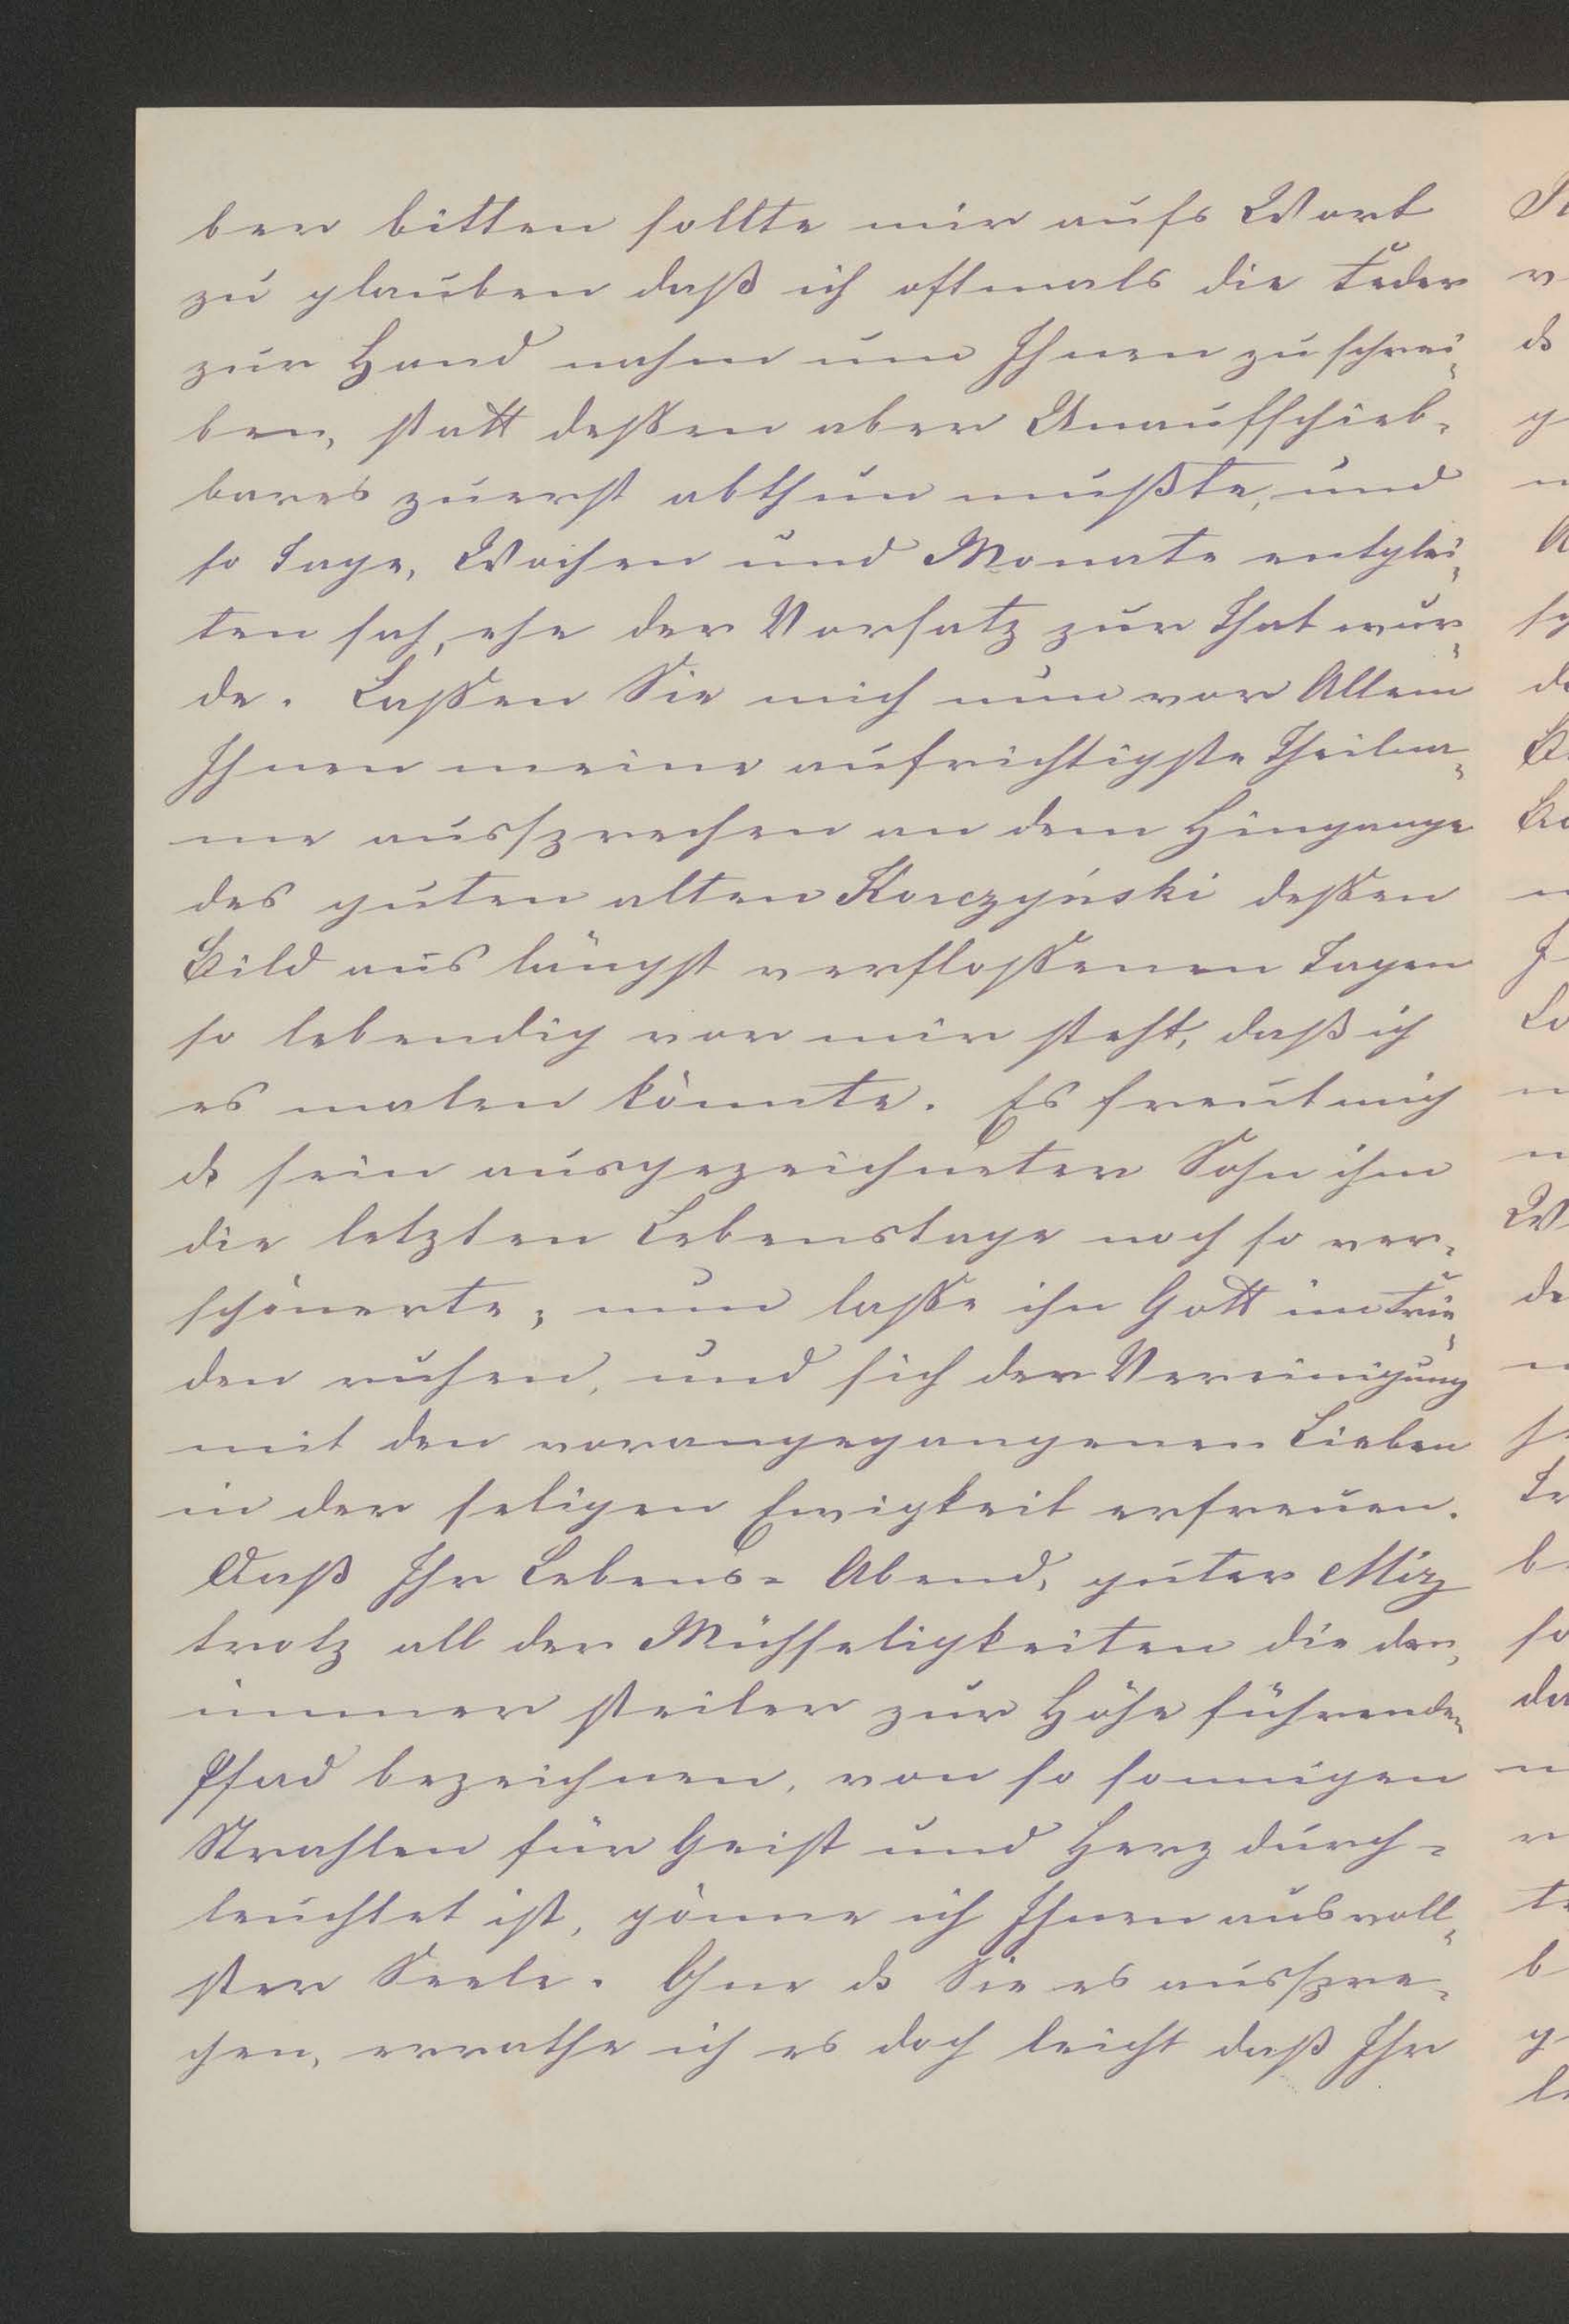 ber bitten sollte mir aufs Wort
zu glauben daß ich oftmals die Feder
zur Hand nahm um Ihnen zu schrei-
ben, statt deßen aber Unaufschieb-
bares zuerst abthun mußte, und
so Tage, Wochen und Monate entglei-
ten sah, ehe der Vorsatz zur That wur-
de. Laßen Sie mich nun vor Allem
Ihnen meine aufrichtigste Theilna-
me aussprechen an dem Hingange
des guten alten Korczyński deßen
Bild aus längst verfloßenen Tagen
so lebendig vor mir steht, daß ich
es malen könnte. Es freut mich
ds sein ausgezeichneter Sohn ihm
die letzten Lebenstage noch so ver-
schönerte; nun laße ihn Gott im Frie-
den ruhen, und sich der Vereinigung
mit den vorangegangenen Lieben
in der seligen Ewigkeit erfreuen.
Daß Ihr Lebens-Abend, guter Mizz
trotz all der Mühseligkeiten die den,
immer steiler zur Höhe führenden
Pfad bezeichnen, von so sonnigen
Strahlen für Geist und Herz durch-
leuchtet ist, gönne ich Ihnen aus voll-
ster Seele. Ohne ds Sie es ausspre-
chen, errathe ich es doch leicht daß Ihr